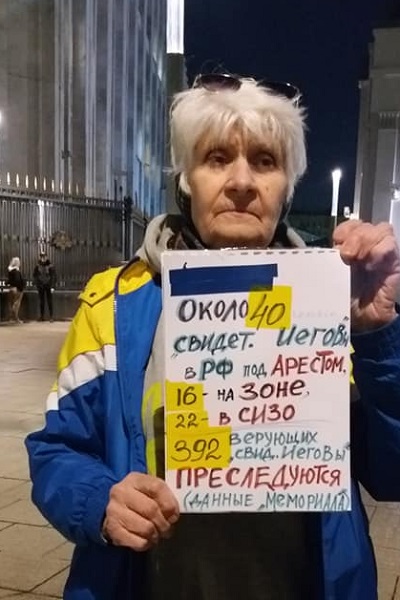 ОКОЛО 40
"СВИДЕТ. ИЕГОВЫ
В РФ ПОД АРЕСТОМ,
16 - НА ЗОНЕ,
22 - В СИЗО
392 ВЕРУЮЩИХ
"СВИД. ИЕГОВЫ"
ПРЕСЛЕДУЮТСЯ
(ДАННЫЕ "МЕМОРИАЛА")